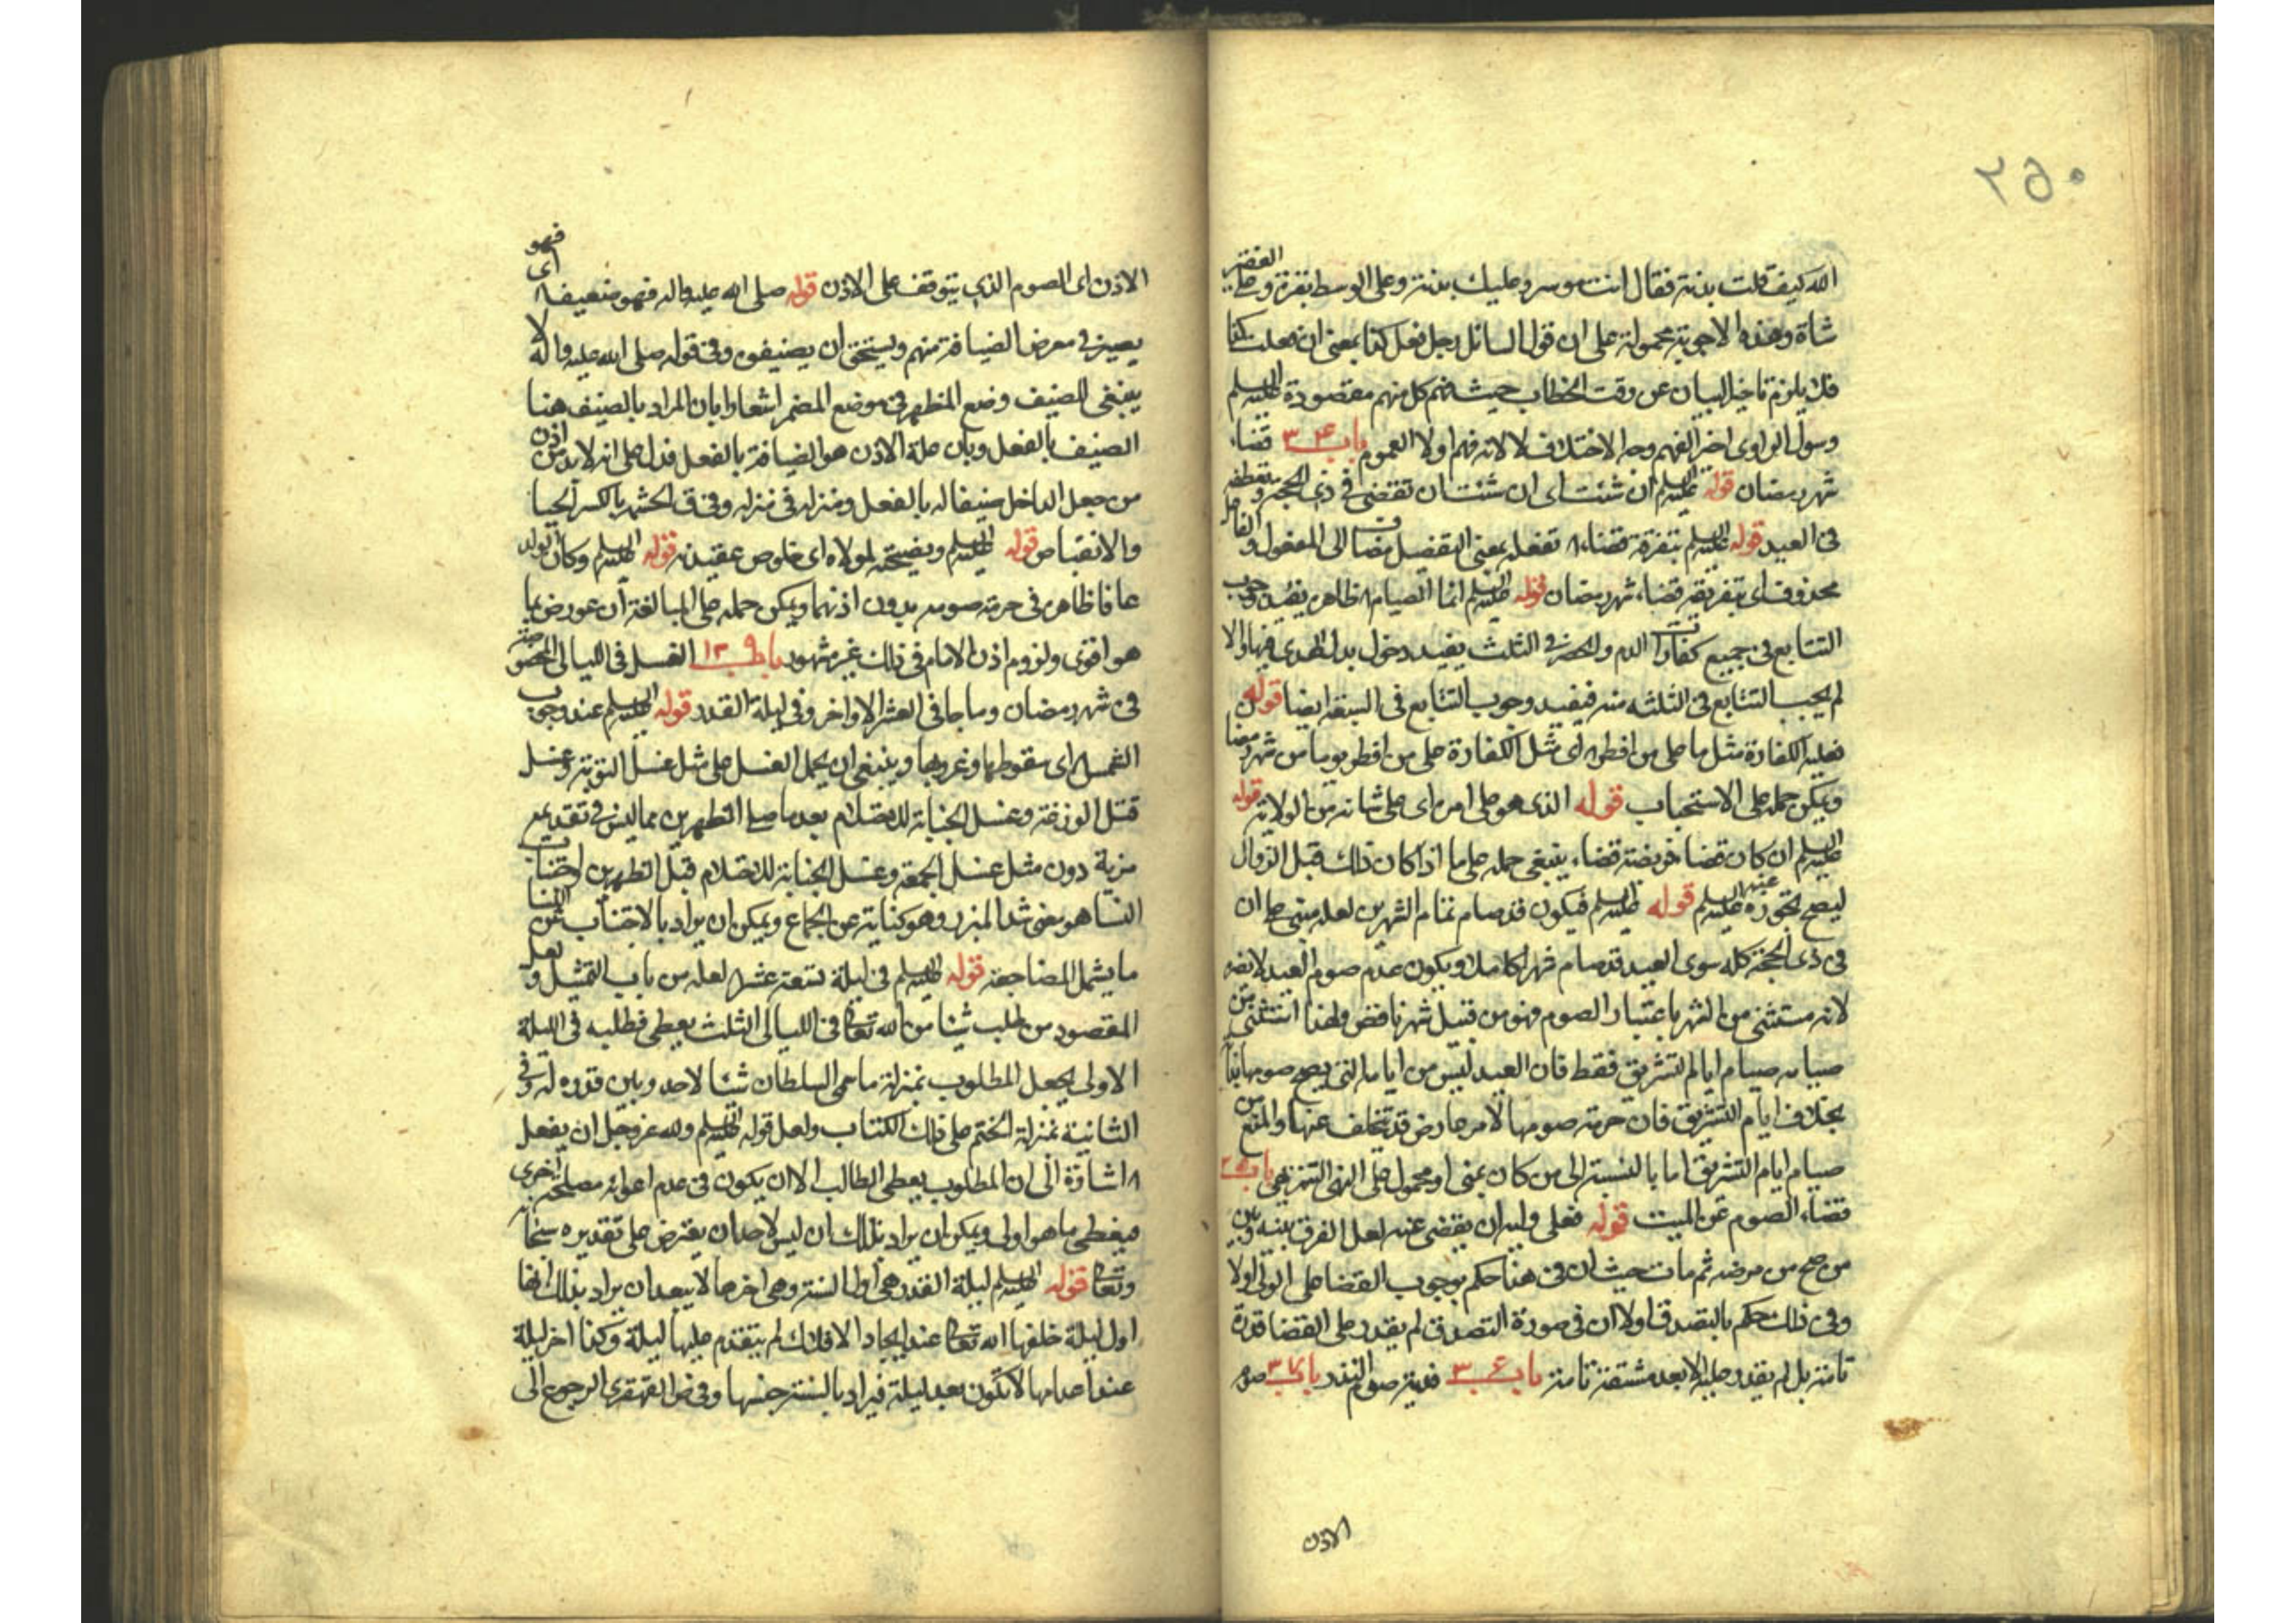 ٢٥٠
الله كيف قلت بدنة فقال انت موسر وعليك بدنة وعلى الوسط بقرة وعلى الفقير
شاة وهذه الاجوبة محمولة على ان قول السائل رجل فعل كذا بمعنى ان فعلت كذا
فلا يلزم تاخير البيان عن وقت الخطاب حيث فهم كل منهم مقصوده عليه السلم
وسؤال الراوي اخر الفهم وجه الاختلاف لا لانه فهم اولا العموم باب ٣٤ قضاء
شهر رمضان قوله عليه السلم ان شئت اى ان شئت ان تقضى فى ذى الحجة
فى العيد قوله عليه السلم بتفرقة قضاء تفعله بمعنى التفضيل مضاف الى المفعول والفاعل
محذوف اى بتفريقه قضاء شهر رمضان قوله عليه السلم انما الصيام ظاهره يفيد وجوب
التتابع فى جميع كفارات الدم والحصر فى الثلث يفيد دخول بدل الهدى فيها والا
لم يجب التتابع فى الثلثة منه فيفيد وجوب التتابع فى السبعة ايضا قوله
فعليه الكفارة مثل ما على من افطر اى مثل الكفارة على من افطر يوما من شهر رمضان
ويمكن حمله على الاستحباب قوله الذى هو على امره اى على شانه من الولاية قوله
عليه السلم ان كان قضا فريضة قضاء ينبغى حمله على ما اذا كان ذلك قبل الزوال
ليصح تجوزه عنه عليه السلم قوله عليه السلم فيكون قد صام تمام الشهرين لعله مبنى على ان
فى ذى الحجة كله سوى العيد قد صام شهرا كاملا ويكون عدم صوم العيد لا يضره
لانه مستثنى من الشهر باعتبار الصوم فهو من قبيل شهر ناقص ولهذا استثنى من
صيامه صيام ايام التشريق فقط فان العيد ليس من ايامه التى يصح صومها
بخلاف ايام التشريق فان حرمة صومها لامر عارض قد تخلف عنها والمنع من
صيام ايام التشريق اما بالنسبة الى من كان بمنى او محمول على النهى التنزيهى باب ٣٥
قضاء الصوم عن الميت قوله فعلى وليه ان يقضى عنه لعل الفرق بينه وبين
من صح من مرضه ثم مات حيث ان فى هذا حكم بوجوب القضا على الولى اولا
وفى ذلك حكم بالتصدق اولا ان فى صورة التصدق لم يقدر على القضا قدرة
تامة بل لم يقدر عليه الا بعد مشقة تامة باب ٣٦ فدية صوم النذر باب ٣٧ صوم
الاذن
الاذن اى الصوم الذى يتوقف على الاذن قوله صلى الله عليه واله فهو ضيف اى فهو
يصير فى معرض الضيافة منهم ويستحق ان يضيفوه وفى قوله صلى الله عليه واله لا
ينبغى للضيف وضع المظهر فى موضع المضمر اشعارا بان المراد بالضيف هنا
الضيف بالفعل وبان علة الاذن هو الضيافة بالفعل فدل على انه لا بد من اذن
من جعل الداخل ضيفا له بالفعل ومنزله فى منزله وفى ق الحشمة بالكسر الحيا
والانقباض قوله عليه السلم ونصيحته لمولاه اى خلوص عقيدته قوله عليه السلم وكان الولد
عاقا ظاهره فى حرمة صومه بدون اذنهما ويمكن حمله على المبالغة ان عورض بما
هو اقوى ولزوم اذن الامام فى ذلك غير مشهور باب ١٣٩ الغسل فى الليالى المخصوصة
فى شهر رمضان وما جا فى العشر الاواخر وفى ليلة القدر قوله عليه السلم عند وجوب
الشمس اى سقوطها وغروبها وينبغى ان يحمل الغسل على مثل غسل التوبة وغسل
قتل الوزغة وغسل الجنابة للاحتلام بعد ما صلى الظهرين مما ليس فى تقديمه
مزية دون مثل غسل الجمعة وغسل الجنابة للاحتلام قبل الظهرين اجتناب
النسا هو معنى شد المئزر وهو كناية عن الجماع ويمكن ان يراد بالاجتناب عن النسا
ما يشمل المضاجعة قوله عليه السلم فى ليلة تسعة عشر لعله من باب التمثيل ولعل
المقصود من طلب شيئا من الله تعالى فى الليالى الثلث يعطى فطلبه فى الليلة
الاولى يجعل المطلوب بمنزلة ما هى السلطان شيئا لاحد وبين قدره له وفى
الثانية بمنزلة الختم على ذلك الكتاب ولعل قوله عليه السلم ولله عز وجل ان يفعل
اشارة الى ان المطلوب يعطى الطالب الا ان يكون فى عدم اعطائه مصلحة اخرى
فيعطى ما هو اولى ويمكن ان يراد بذلك ان ليس لاحد ان يعترض على تقديره سبحانه
وتعالى قوله عليه السلم ليلة القدر هى اول السنة وهى اخرها لا يبعد ان يراد بذلك انها
اول ليلة خلقها الله تعالى عند ايجاد الافلاك لم يتقدم عليها ليلة وكذا اخر ليلة
عند اعدامها لا تكون بعد ليلة فيراد بالسنة جنسها وفى ض القهقرى الرجوع الى